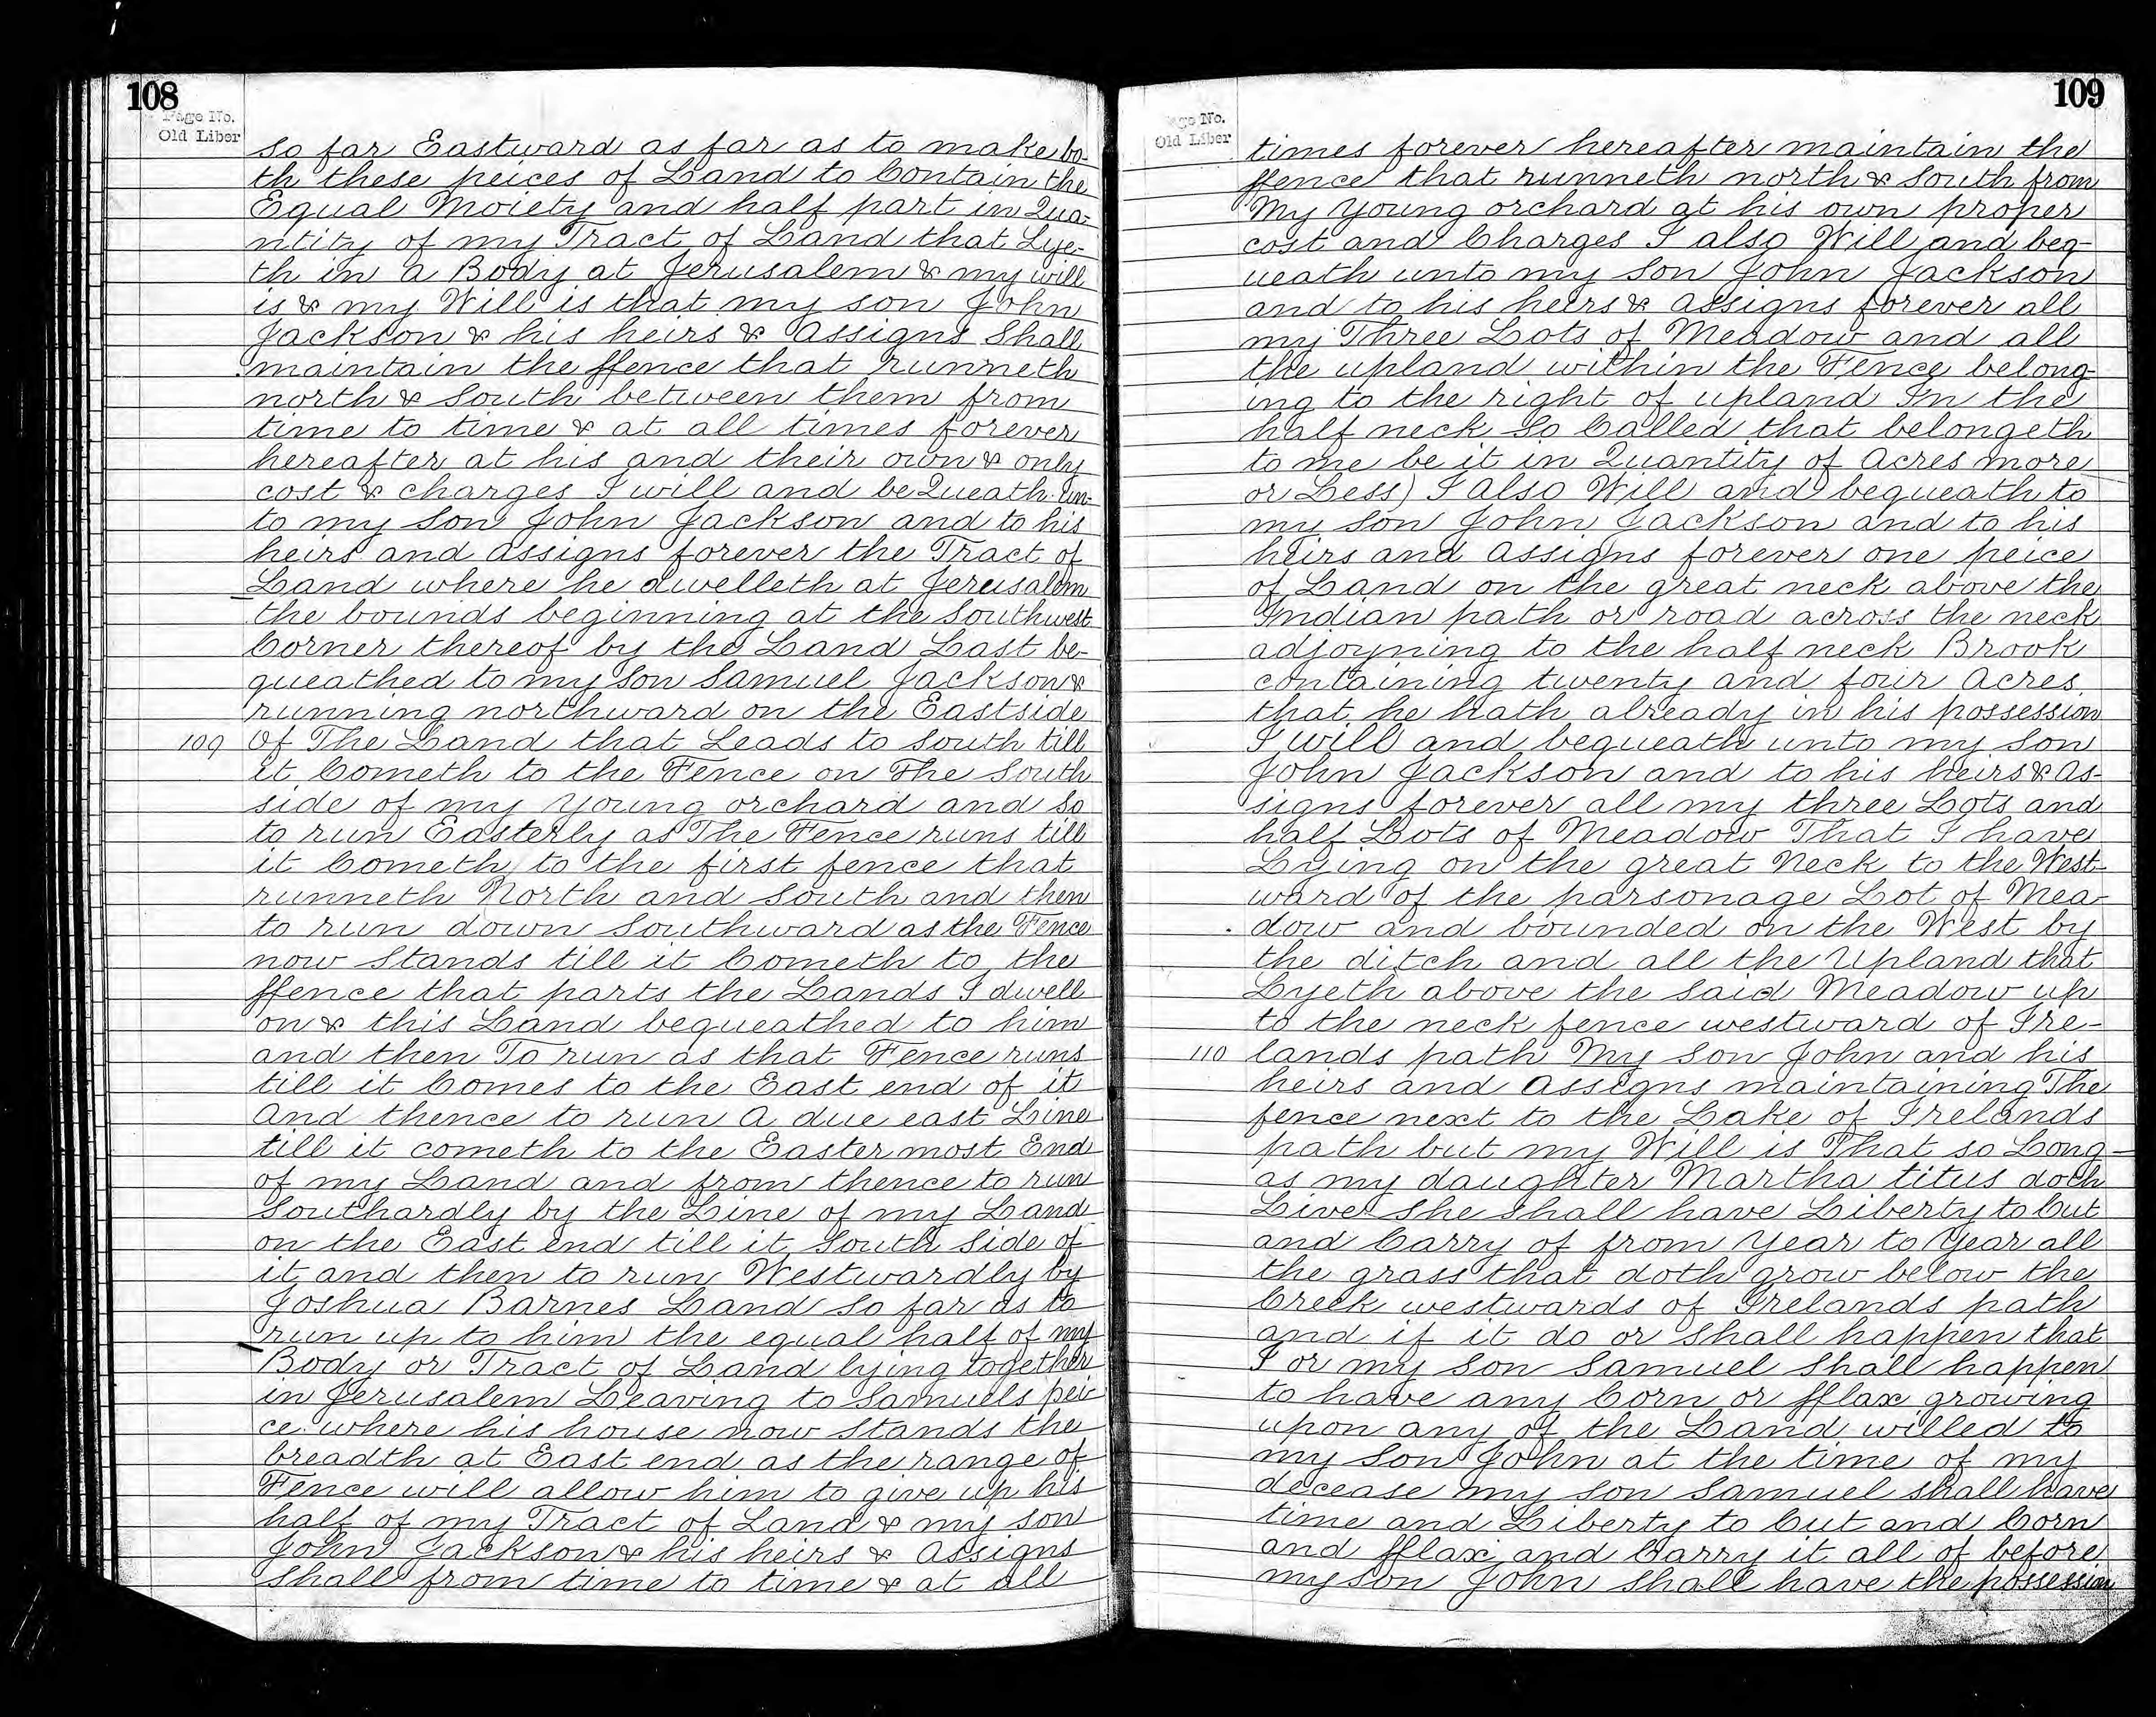 108
Page No.
Old Liber
so far Eastward as far as to make bo-
th these peices of Land to Contain the
Equal Moiety and half part in Qua-
ntity of my Tract of Land that Lye-
th in a Body at Jerusalem & my will
is & my Will is that my son John
Jackson & his heirs & Assigns Shall
maintain the ffence that runneth
north & South between them from
time to time & at all times forever
hereafter at his and their own & only
cost & charges I will and beQueath un-
to my Son John Jackson and to his
heirs and assigns forever the Tract of
Land where he dwelleth at Jerusalem
the bounds beginning at the Southwest
Corner thereof by the Land Last be-
queathed to my Son Samuel Jackson &
running northward on the Eastside
109 Of The Land that Leads to South till
it Cometh to the Fence on The South
side of my Young orchard and So
to run Easterly as The Fence runs till
it Cometh to the first fence that
runneth North and South and then
to run down Southward as the Fence
now Stands till it Cometh to the
ffence that parts the Lands I dwell
on & this Land bequeathed to him
and then To run as that Fence runs
till it Comes to the East end of it
and thence to run a due east Line
till it cometh to the Easter most End
of my Land and from thence to run
Southardly by the Line of my Land
on the East end till it South Side of
it and then to run Westwardly by
Joshua Barnes Land So far as to
run up to him the equal half of my
Body or Tract of Land lying together
in Jerusalem Leaving to Samuels pei-
ce where his house now Stands the
breadth at East end as the range of
Fence will allow him to give up his
half of my Tract of Land & my son
John Jackson & his heirs & Assigns
Shall from time to time & at all
109
Page No.
Old Liber
times forever hereafter maintain the
ffence that runneth north & South from
My Young orchard at his own proper
cost and Charges I also Will and beq-
ueath unto my Son John Jackson
and to his heirs & Assigns forever all
my Three Lots of Meadow and all
the upland within the Fence belong-
ing to the right of upland In the
half neck So Called that belongeth
to me be it in Quantity of Acres more
or Less) I also Will and bequeath to
my Son John Jackson and to his
heirs and Assigns forever one peice
of Land on the great neck above the
Indian path or road across the neck
adjoyning to the half neck Brook
containing twenty and four Acres
that he hath already in his possession
I will and bequeath unto my Son
John Jackson and to his heirs & As-
signs forever all my three Lots and
half Lots of Meadow That I have
Lying on the great Neck to the West-
ward of the parsonage Lot of Mea-
dow and bounded on the West by
the ditch and all the Upland that
Lyeth above the Said Meadow up
to the neck fence westward of Ire-
110 lands path My Son John and his
heirs and Assigns maintaining The
fence next to the Lake of Irelands
path but my Will is That so Long
as my daughter Martha titus doth
Live She Shall have Liberty to Cut
and Carry of from Year to Year all
the grass that doth grow below the
Creek westwards of Irelands path
and if it do or Shall happen that
I or my Son Samuel Shall happen
to have any Corn or fflax growing
upon any of the Land willed to
my Son John at the time of my
decease my Son Samuel Shall have
time and Liberty to Cut and Corn
and fflax and Carry it all of before
my Son John Shall have the possession